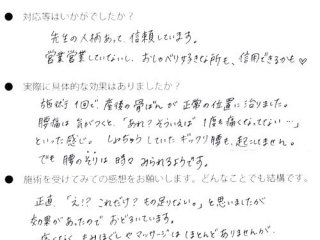 ● 対応等はいかがでしたか？
先生の人柄あって、信頼しています。
営業営業していないし、おしゃべり好きな所も、信用できるかも♡
● 実際に具体的な効果はありましたか？
施術1回で産後の骨ばんが正常の位置に治りました。
腰痛は気がつくと、「あれ？そういえば1度も痛くなってない…」
といった感じ。しょっちゅうしていたギックリ腰も、起こしてません。
でも腰のそりは時々みられるようです。
● 施術を受けてみての感想をお願いします。どんなことでも結構です。
正直「え!?これだけ？もの足りない。」と思いましたが
効果があったのでおどろいています。
痛くなく、もみほぐしやマッサージはほとんどありませんが、